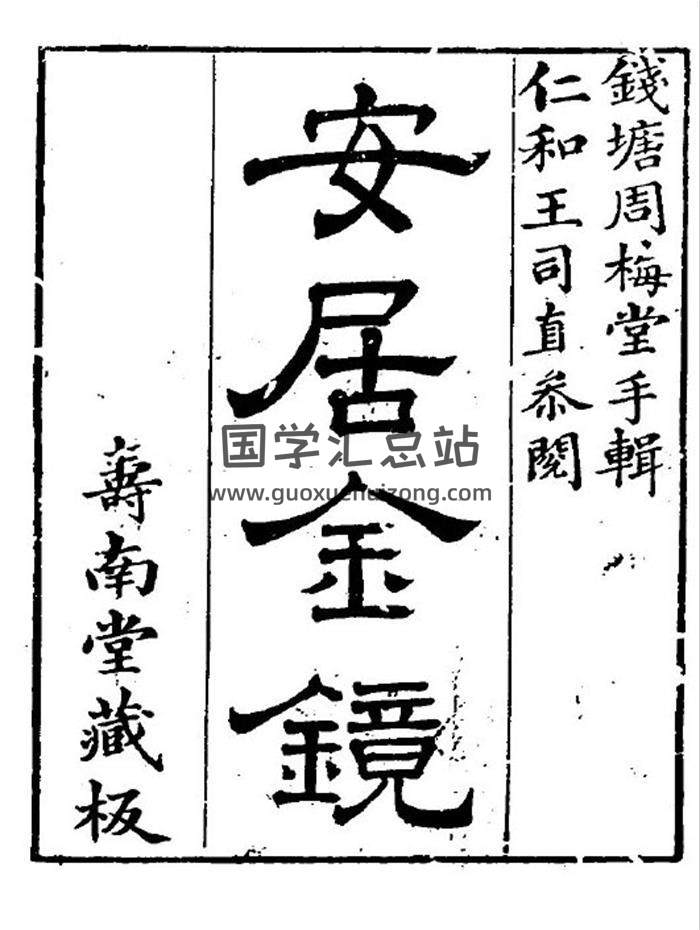 錢塘周梅堂手輯
仁和王司直叅閱
安居金鏡
壽南堂藏板
国学汇总站
www.guoxuehuizong.com